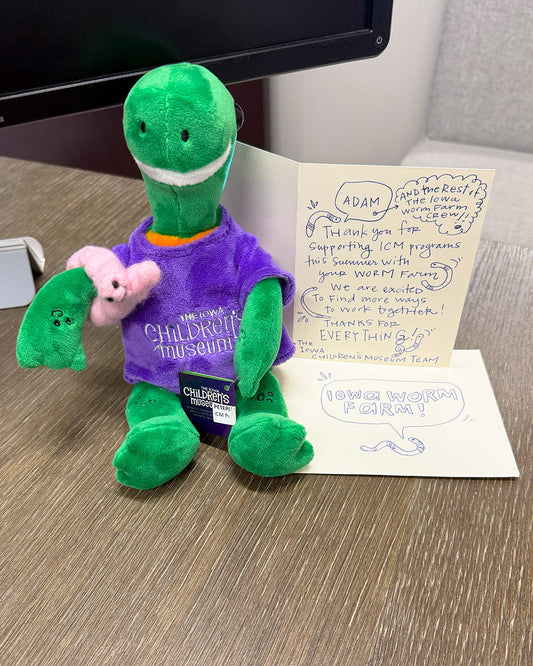 THE IOWA
CHILDREN'S
MUSEUM
THE IOWA
CHILDREN'S
MUSEUM
ICM P
ADAM
AND THE REST OF
THE IOWA
WORM FARM
CREW!!
THANK you for
Supporting ICM programs
this Summer with
your WORM FARM
We are excited
To Find more ways
to work together!
THANKS FOR
EVERYTHING!
The
IOWA
CHILDREN'S MUSEUM TEAM
IOWA WORM
FARM!